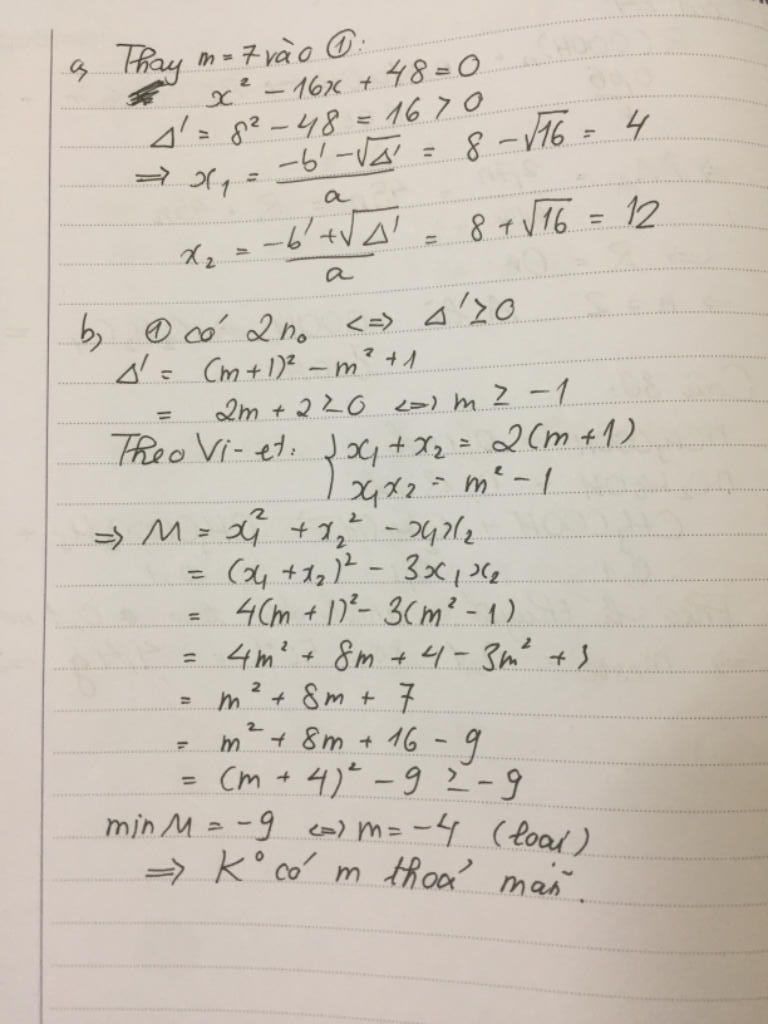 a, Thay m = 7 vào ①:
x² - 16x + 48 = 0
Δ' = 8² - 48 = 16 > 0
=> x₁ = (-b' - √Δ')/a = 8 - √16 = 4
x₂ = (-b' + √Δ')/a = 8 + √16 = 12
b, ① có 2 n₀ <=> Δ' ≥ 0
Δ' = (m+1)² - m² + 1
= 2m + 2 ≥ 0 <=> m ≥ -1
Theo Vi-et: { x₁ + x₂ = 2(m+1)
x₁x₂ = m² - 1
=> M = x₁² + x₂² - x₁x₂
= (x₁ + x₂)² - 3x₁x₂
= 4(m + 1)² - 3(m² - 1)
= 4m² + 8m + 4 - 3m² + 3
= m² + 8m + 7
= m² + 8m + 16 - 9
= (m + 4)² - 9 ≥ -9
min M = -9 <=> m = -4 (loại)
=> K° có m thoả mãn.